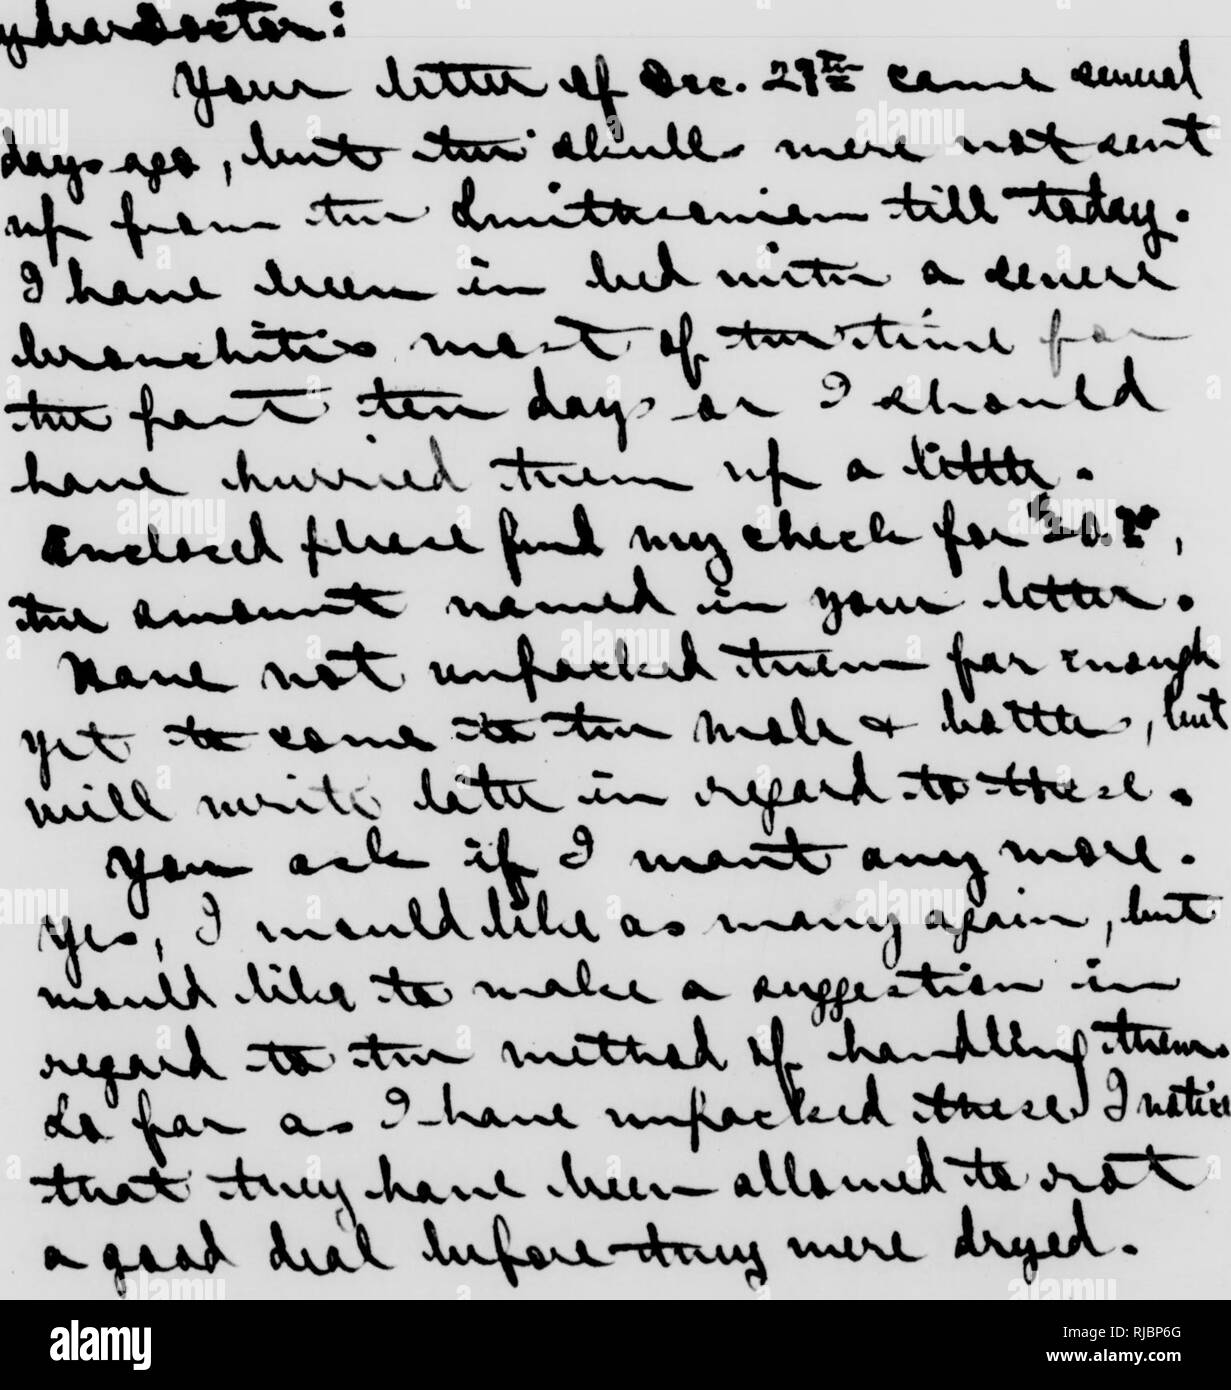 y dear Doctor:
Your letter of Dec. 29th came several
days ago, but the skulls were not sent
up from the Smithsonian till today.
I have been in bed with a severe
bronchitis most of the time for
the past ten days or I should
have hurried them up a little.
Enclosed please find my check for
the amount named in your letter.
Have not unpacked them far enough
yet to come to the mole & bottle, but
will write later in regard to these.
You ask if I want any more.
Yes, I would like as many again, but
would like to make a suggestion in
regard to the method of handling them.
So far as I have unpacked these I notice
that they have been allowed to rot
a good deal before they were dryed.
alamy
Image ID: RJBP6G
www.alamy.com